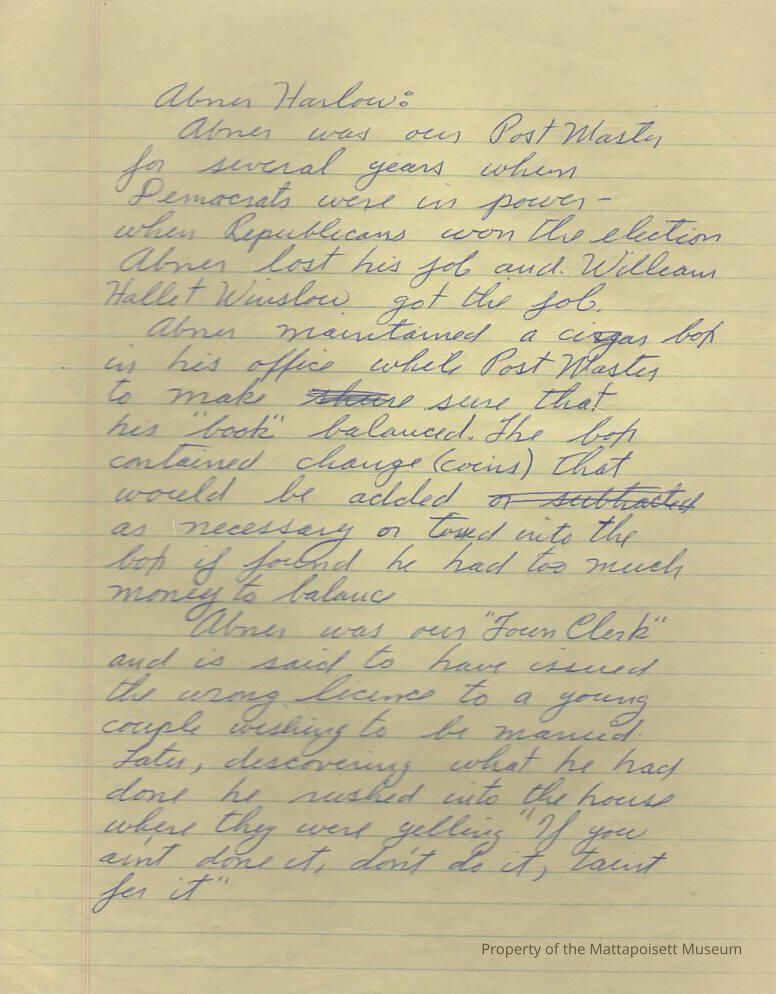 Abner Harlow:
Abner was our Post Master
for several years when
Democrats were in power -
when Republicans won the election
Abner lost his job and William
Hallet Winslow got the job.
Abner maintained a cigar box
in his office while Post Master
to make sure that
his "book" balanced. The box
contained change (coins) that
would be added or subtracted
as necessary or tossed into the
box if found he had too much
money to balance
Abner was our "Town Clerk"
and is said to have issued
the wrong licence to a young
couple wishing to be married.
Later, discovering what he had
done he rushed into the house
where they were yelling "If you
ain't done it, don't do it, taint
fer it"
Property of the Mattapoisett Museum